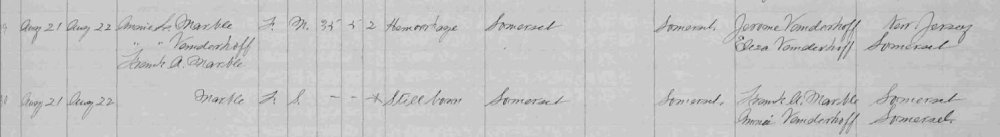 Aug 21 Aug 22 Annie L. Marble F. M. 35 5 2 Hemorrhage Somerset Somerset. Jerome Vanderhoff New Jersey
" " Vanderhoff Eliza Vanderhoff Somerset
Frank A. Marble
Aug 21 Aug 22 Marble F. S. - - * Still born Somerset Somerset. Frank A. Marble Somerset
Annie Vanderhoff Somerset.